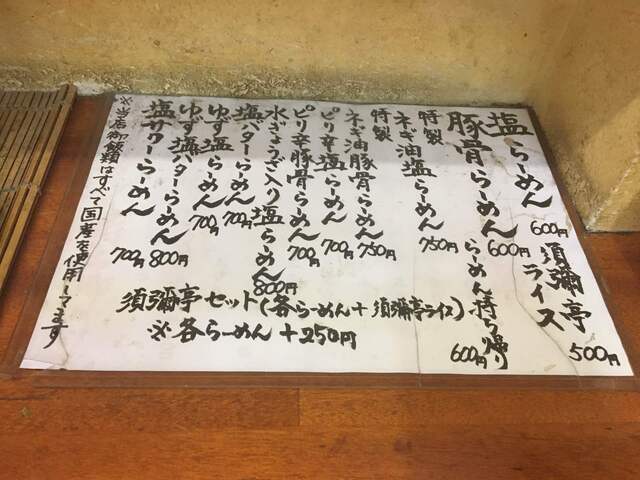 塩らーめん 600円
須彌亭ライス 500円
豚骨らーめん 600円
らーめん持ち帰り 600円
特製ネギ油塩らーめん 750円
特製ネギ油豚骨らーめん 750円
ピリ辛塩らーめん 700円
ピリ辛豚骨らーめん 700円
水ぎょうざ入り塩らーめん 800円
塩バターらーめん 700円
ゆず塩らーめん 700円
ゆず塩バターらーめん 800円
塩サワーらーめん 700円
須彌亭セット(各らーめん+須彌亭ライス)
※各らーめん+250円
※当店御飯類はすべて国産を使用してます